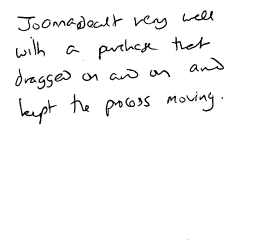 Joomadealt very well
with a purchase that
dragged on and on and
kept the process moving.